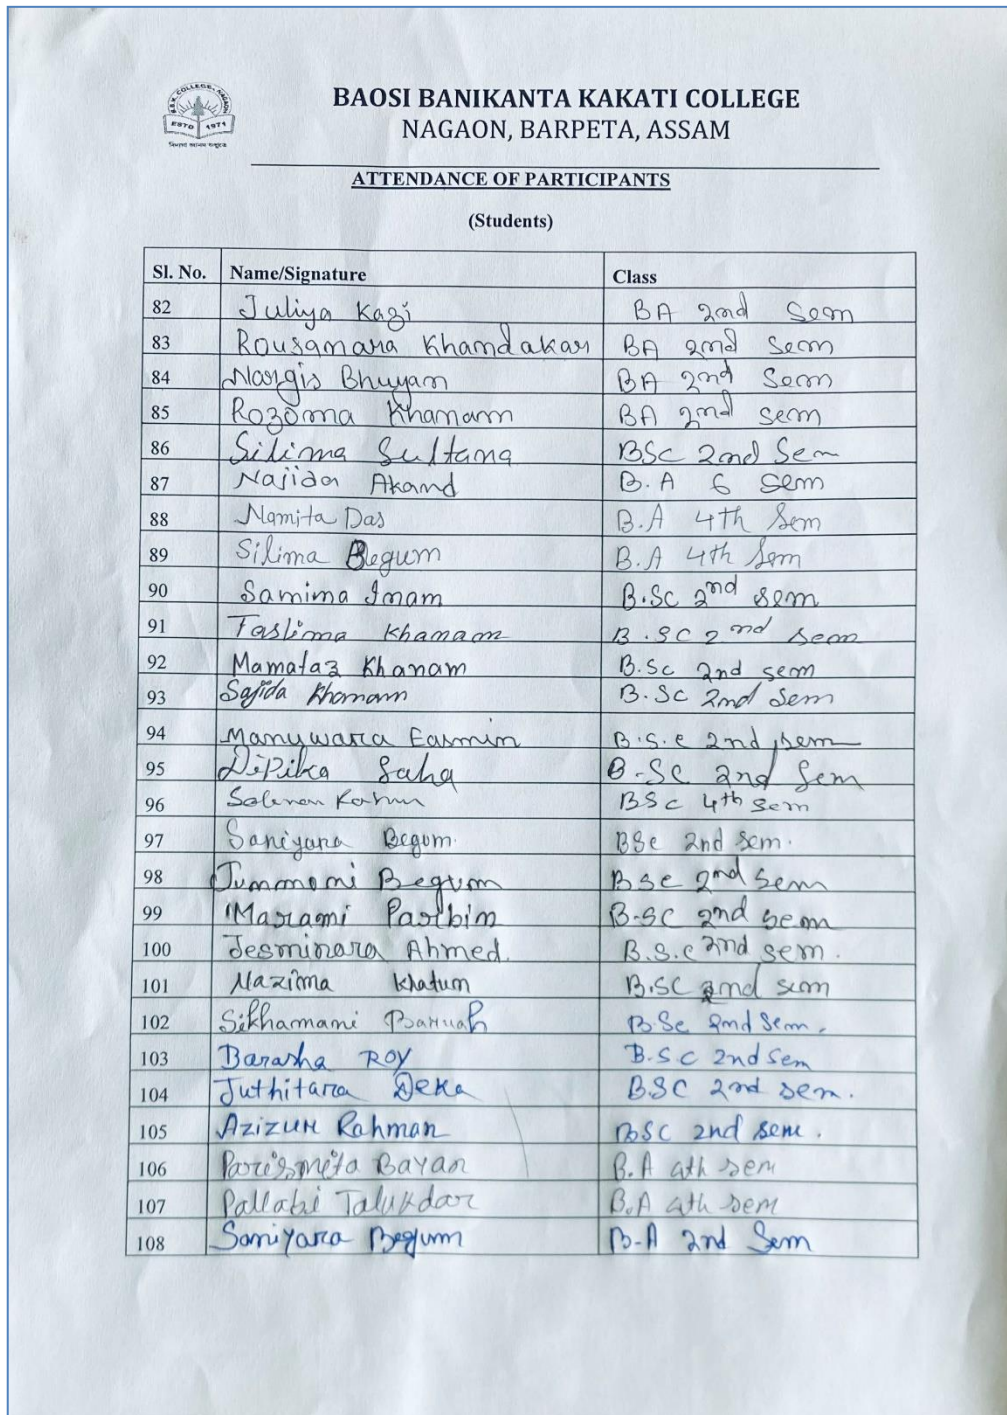 B.B.K. COLLEGE, NAGAON
ESTD 1971
BAOSI BANIKANTA KAKATI COLLEGE
NAGAON, BARPETA, ASSAM
ATTENDANCE OF PARTICIPANTS
(Students)
Sl. No. Name/Signature Class
82 Juliya Kazi BA 2nd Sem
83 Rousanara Khandakar BA 2nd Sem
84 Nargis Bhuyam BA 2nd Sem
85 Rozoma Khanam BA 2nd sem
86 Silima Sultana BSC 2nd Sem
87 Najida Akand B.A 6 Sem
88 Namita Das B.A 4th Sem
89 Silima Begum B.A 4th Sem
90 Samima Imam B.Sc 2nd sem
91 Taslima Khanam B.SC 2nd sem
92 Mamataz Khanam B.Sc 2nd sem
93 Sajida Khanam B.SC 2nd Sem
94 Manywara Easmin B.S.c 2nd sem
95 Dipika Saha B-SC 2nd Sem
96 BSC 4th sem
97 Saniyara Begum. BSc 2nd sem.
98 Jummoni Begum BSc 2nd Sem
99 Marami Parbin B-SC 2nd sem
100 Jesminara Ahmed. B.S.c 2nd sem.
101 Nazima Khatum B.SC 2nd sem
102 Sikhamani Baruah B.Sc 2nd Sem.
103 Barasha ROY B.S.C 2nd Sem
104 Juthitara Deka BSC 2nd sem.
105 Azizur Rahman BSC 2nd sem.
106 Parismita Bayan B.A 4th sem
107 Pallabi Talukdar B.A 4th sem
108 Saniyara Begum B-A 2nd Sem